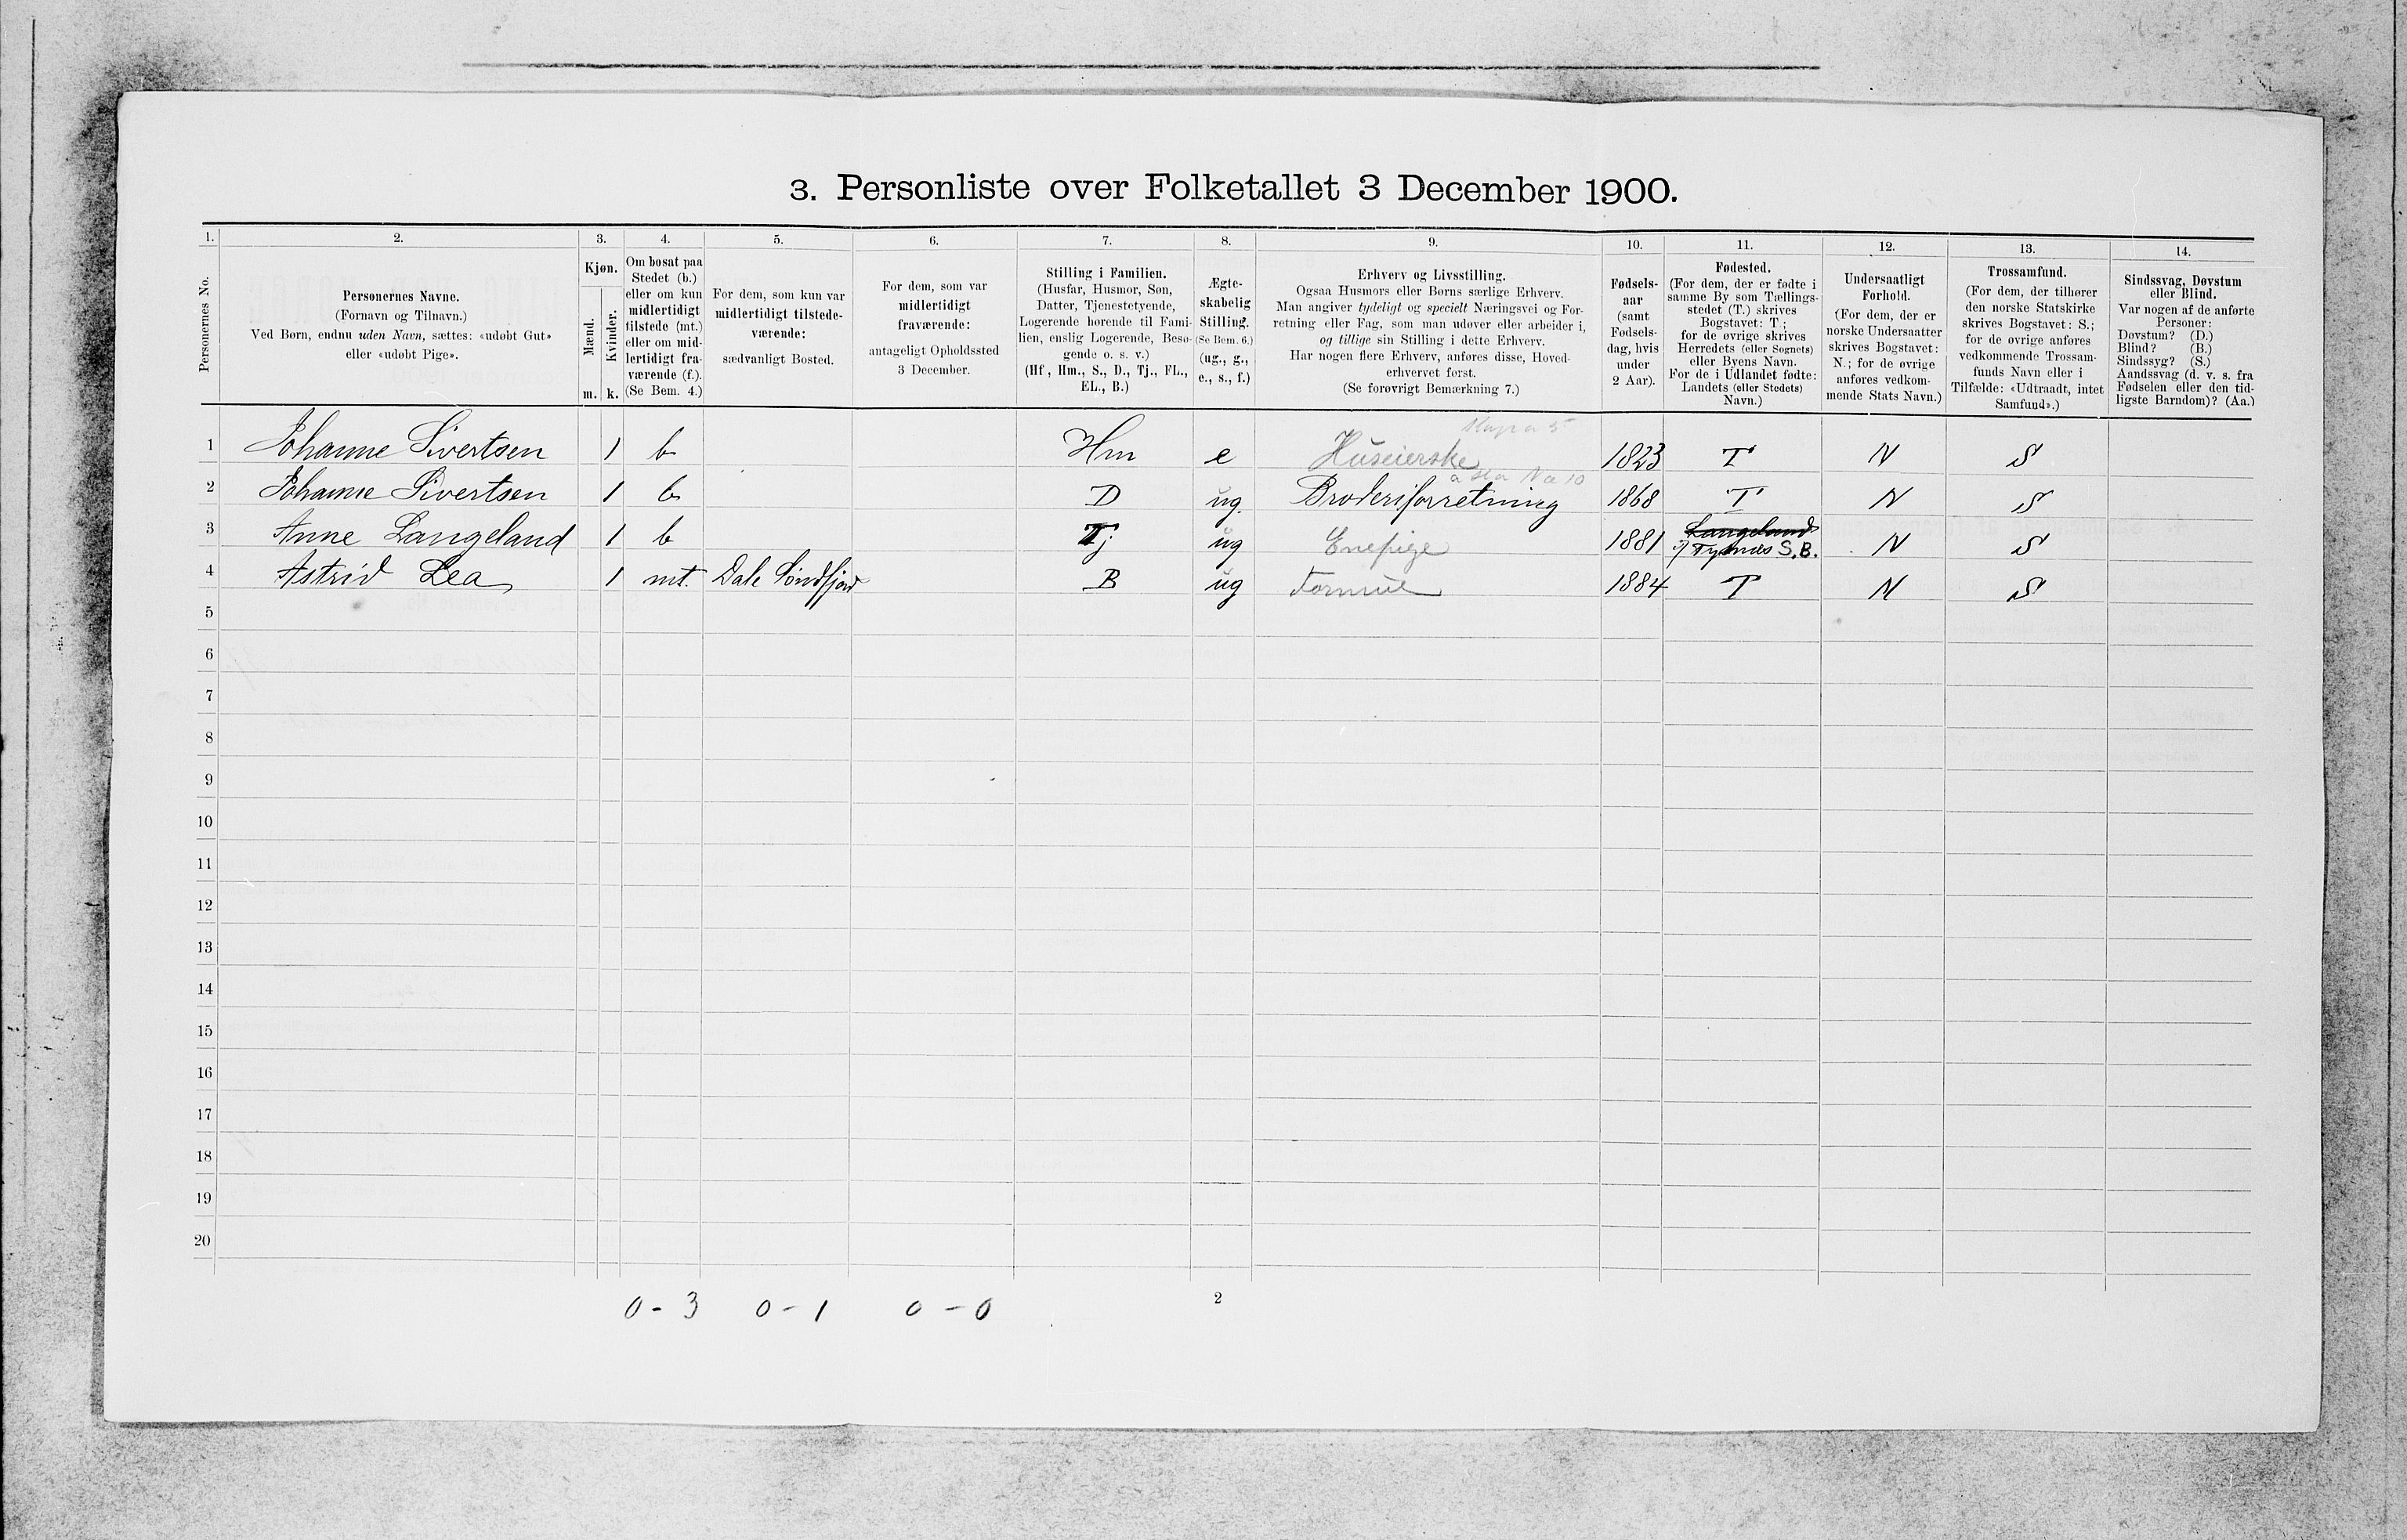 3. Personliste over Folketallet 3 December 1900.
1. 2. 3. 4. 5. 6. 7. 8. 9. 10. 11. 12. 13. 14.
Personernes No.
Personernes Navne.
(Fornavn og Tilnavn.)
Ved Børn, endnu uden Navn, sættes: «udøbt Gut»
eller «udøbt Pige».
Kjøn.
Mænd.
Kvinder.
m. k.
Om bosat paa
Stedet (b.)
eller om kun
midlertidigt
tilstede (mt.)
eller om mid-
lertidigt fra-
værende (f.).
(Se Bem. 4.)
For dem, som kun var
midlertidigt tilstede-
værende:
sædvanligt Bosted.
For dem, som var
midlertidigt
fraværende:
antageligt Opholdssted
3 December.
Stilling i Familien.
(Husfar, Husmor, Søn,
Datter, Tjenestetyende,
Logerende hørende til Fami-
lien, enslig Logerende, Besø-
gende o. s. v.)
(Hf., Hm., S., D., Tj., FL.,
EL., B.)
Ægte-
skabelig
Stilling.
(Se Bem. 6.)
(ug., g.,
e., s., f.)
Erhverv og Livsstilling.
Ogsaa Husmors eller Børns særlige Erhverv.
Man angiver tydeligt og specielt Næringsvei og For-
retning eller Fag, som man udøver eller arbeider i,
og tillige sin Stilling i dette Erhverv.
Har nogen flere Erhverv, anføres disse, Hoved-
erhvervet først.
(Se forøvrigt Bemærkning 7.)
Fødsels-
aar
(samt
Fødsels-
dag, hvis
under
2 Aar).
Fødested.
(For dem, der er fødte i
samme By som Tællings-
stedet (T.) skrives
Bogstavet: T.;
for de øvrige skrives
Herredets (eller Sognets)
eller Byens Navn.
For de i Udlandet fødte:
Landets (eller Stedets)
Navn.)
Undersaatligt
Forhold.
(For dem, der er
norske Undersaatter
skrives Bogstavet:
N.; for de øvrige
anføres vedkom-
mende Stats Navn.)
Trossamfund.
(For dem, der tilhører
den norske Statskirke
skrives Bogstavet: S.;
for de øvrige anføres
vedkommende Trossam-
funds Navn eller i
Tilfælde: «Udtraadt, intet
Samfund».)
Sindssvag, Døvstum
eller Blind.
Var nogen af de anførte
Personer:
Døvstum? (D.)
Blind? (B.)
Sindssyg? (S.)
Aandssvag (d. v. s. fra
Fødselen eller den tid-
ligste Barndom)? (Aa.)
1 Johanne Sivertsen 1 b Hm e Huseierske 1823 T N S
2 Johanne Sivertsen 1 b D ug. Broderiforretning 1868 T N S
3 Anne Langeland 1 b Tj. ug Enepige 1881 Langeland Tysnes S.B. N S
4 Astrid Lea 1 mt. Dale Søndfjord B ug 1884 T N S
5
6
7
8
9
10
11
12
13
14
15
16
17
18
19
20
0 - 3 0 - 1 0 - 0
2